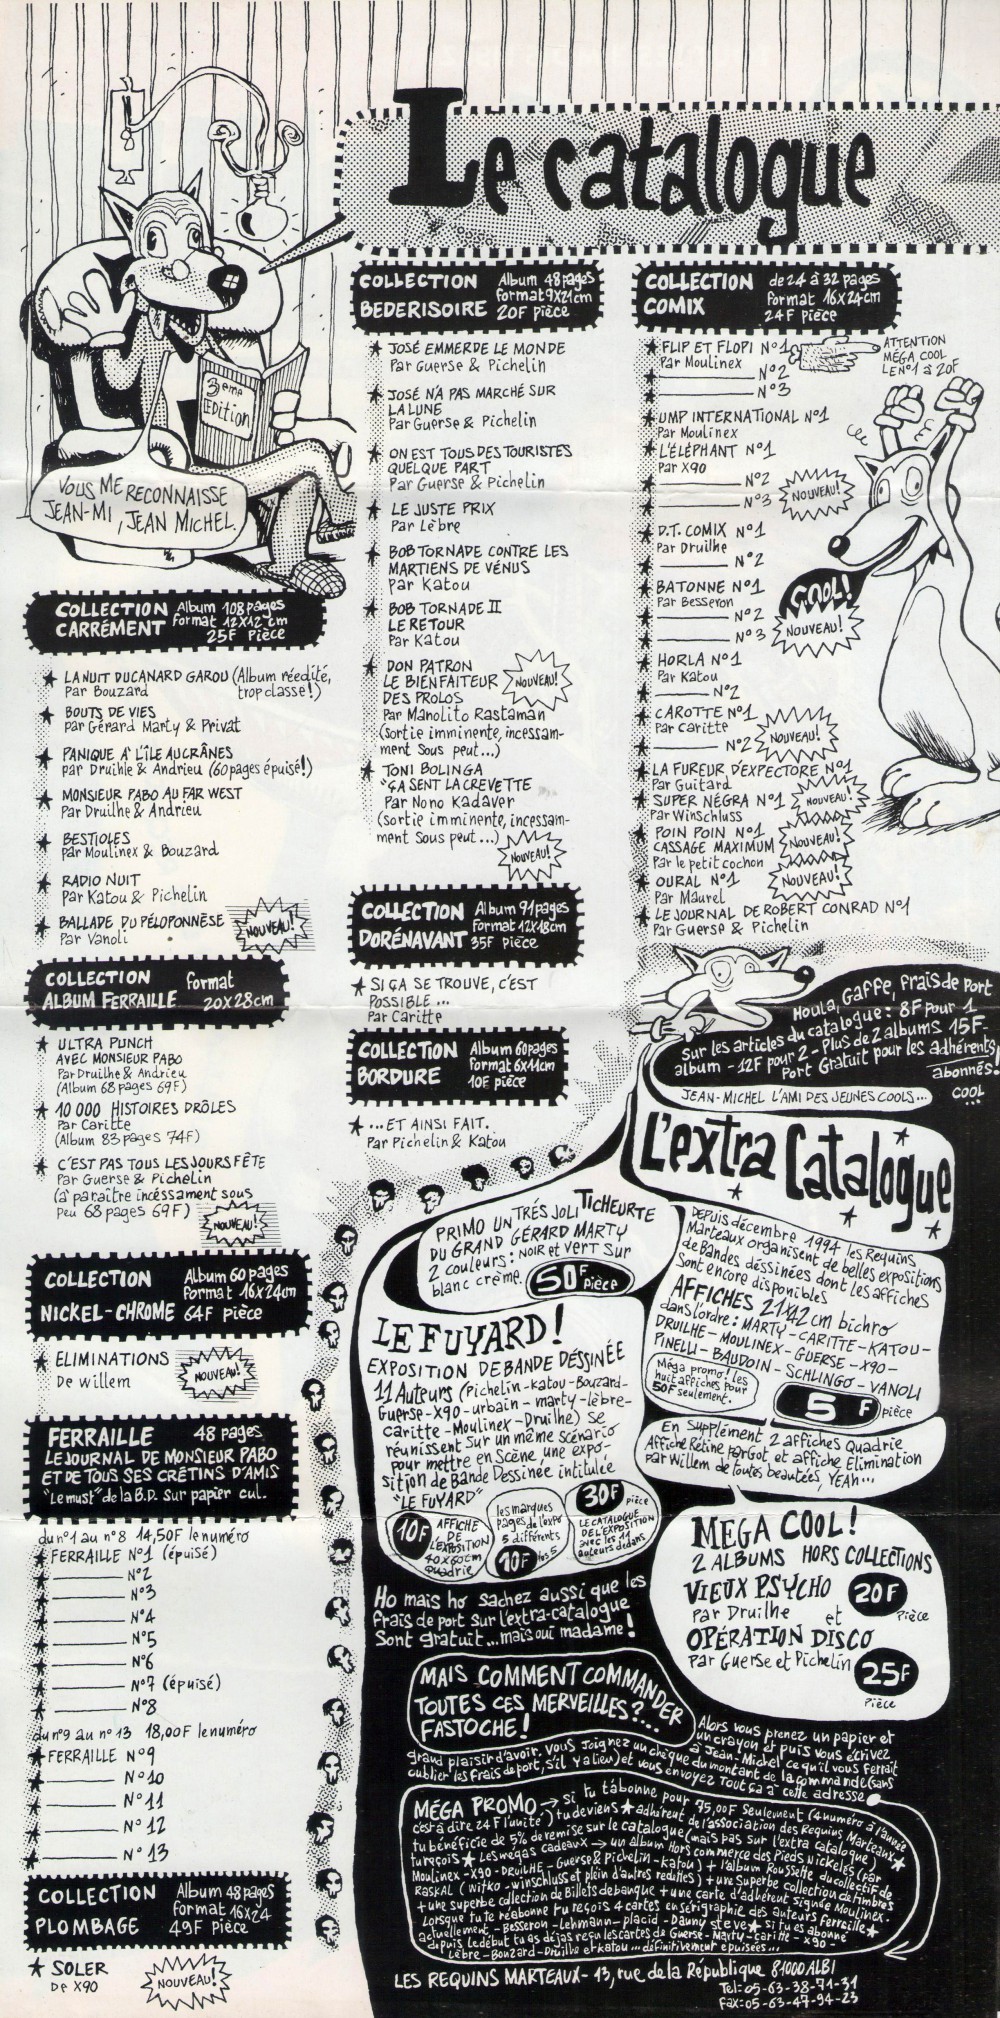 Le catalogue
3eme
Edition
VOUS ME RECONNAISSE
JEAN-MI, JEAN MICHEL.
COLLECTION
CARRÉMENT
Album 108 pages
format 12x12 cm
25F pièce
LA NUIT DU CANARD GAROU (Album réédité,
Par Bouzard trop classe!)
BOUTS DE VIES
par Gérard Marty & Privat
PANIQUE A L'ÎLE AU CRÂNES
par Druihle & Andrieu (60 pages épuisé!)
MONSIEUR PABO AU FAR WEST
Par Druilhe & Andrieu
BESTIOLES
Par Moulinex & Bouzard
RADIO NUIT
Par Katou & Pichelin
BALLADE DU PÉLOPONNÈSE
Par Vanoli
NOUVEAU!
COLLECTION
ALBUM FERRAILLE
format
20x28cm
ULTRA PUNCH
AVEC MONSIEUR PABO
Par Druilhe & Andrieu
(Album 68 pages 69F)
10 000 HISTOIRES DRÔLES
Par Caritte
(Album 83 pages 74F)
C'EST PAS TOUS LES JOURS FÊTE
Par Guerse & Pichelin
(à paraître incéssament sous
peu 68 pages 69F)
NOUVEAU!
COLLECTION
NICKEL-CHROME
Album 60 pages
format 16x24cm
64F pièce
ELIMINATIONS
De willem
NOUVEAU!
FERRAILLE 48 pages
LE JOURNAL DE MONSIEUR PABO
ET DE TOUS SES CRÉTINS D'AMIS
"Le must" de la B.D. sur papier cul.
du n°1 au n°8 14,50F le numéro
FERRAILLE N°1 (épuisé)
N°2
N°3
N°4
N°5
N°6
N°7 (épuisé)
N°8
du n°9 au n°13 18,00F le numéro
FERRAILLE N°9
N°10
N°11
N°12
N°13
COLLECTION
PLOMBAGE
Album 48 pages
format 16x24
49F pièce
SOLER
De X90
NOUVEAU!
COLLECTION
BEDERISOIRE
Album 48 pages
format 9x21cm
20F pièce
JOSÉ EMMERDE LE MONDE
Par Guerse & Pichelin
JOSÉ N'A PAS MARCHÉ SUR
LA LUNE
Par Guerse & Pichelin
ON EST TOUS DES TOURISTES
QUELQUE PART
Par Guerse & Pichelin
LE JUSTE PRIX
Par Lèbre
BOB TORNADE CONTRE LES
MARTIENS DE VÉNUS
par Katou
BOB TORNADE II
LE RETOUR
Par Katou
DON PATRON
LE BIENFAITEUR
DES PROLOS
NOUVEAU!
Par Manolito Rastaman
(Sortie imminente, incessam-
ment sous peut...)
TONI BOLINGA
"ÇA SENT LA CREVETTE
Par Nono Kadaver
(Sortie imminente, incessam-
ment sous peut...)
NOUVEAU!
COLLECTION
DORÉNAVANT
Album 91 pages
format 12x18cm
35F pièce
SI ÇA SE TROUVE, C'EST
POSSIBLE ...
Par Caritte
COLLECTION
BORDURE
Album 60 pages
format 6x11cm
10F pièce
...ET AINSI FAIT.
Par Pichelin & Katou
COLLECTION
COMIX
de 24 à 32 pages
format 16x24cm
24F pièce
FLIP ET FLOPI N°1
Par Moulinex
N°2
N°3
ATTENTION
MÉGA COOL
LE N°1 à 20F
UMP INTERNATIONAL N°1
Par Moulinex
L'ÉLÉPHANT N°1
Par X90
N°2
N°3
NOUVEAU!
D.T. COMIX N°1
Par Druilhe
N°2
BATONNE N°1
Par Besseron
N°2
N°3
COOL!
NOUVEAU!
HORLA N°1
Par Katou
N°2
CAROTTE N°1
Par Caritte
N°2
NOUVEAU!
LA FUREUR D'EXPECTORE N°1
Par Guitard
SUPER NÉGRA N°1
Par Winschluss
NOUVEAU!
POIN POIN N°1
CASSAGE MAXIMUM
Par le petit cochon
NOUVEAU!
OURAL N°1
Par Maurel
NOUVEAU!
LE JOURNAL DE ROBERT CONRAD N°1
Par Guerse & Pichelin
Houla, Gaffe, frais de port
Sur les articles du catalogue : 8F pour 1
album - 12F pour 2 - Plus de 2 albums 15F-
Port Gratuit pour les adhérents,
abonnés!
COOL
...
JEAN-MICHEL L'AMI DES JEUNES COOLS...
L'extra Catalogue
PRIMO UN TRÉS JOLI TICHEURTE
DU GRAND GÉRARD MARTY
2 couleurs : NOIR et VERT sur
blanc crème.
50F pièce
LE FUYARD!
EXPOSITION DE BANDE DESSINÉE
11 Auteurs (Pichelin - Katou - Bouzard-
Guerse - X90 - urbain - marty - lèbre-
caritte - Moulinex - Druilhe) se
réunissent sur un même scénario
pour mettre en scène, une expo-
sition de Bande Dessinée intitulée
"LE FUYARD"
10F AFFICHE
DE
L'EXPOSITION
40x60cm
quadrie
les marques
pages de l'expo
5 différents
10F les 5
30F pièce
LE CATALOGUE
DE L'EXPOSITION
avec les 11
auteurs dedans
DEPUIS décembre 1994 les Requins
Marteaux organisent de belles expositions
de Bandes dessinées dont les affiches
sont encore disponibles
AFFICHES 21x42 cm bichro
dans l'ordre : MARTY - CARITTE - KATOU -
DRUILHE - MOULINEX - GUERSE - X90 -
PINELLI - BAUDOIN - SCHLINGO - VANOLI
Méga promo! les
huit affiches pour
50F seulement.
5F pièce
En supplément 2 affiches Quadrie
Affiche Rétine par Got et affiche Elimination
par Willem de toutes beautées, YEAH...
MEGA COOL!
2 ALBUMS HORS COLLECTIONS
VIEUX PSYCHO
par Druilhe
20F
pièce
et
OPÉRATION DISCO
par Guerse et Pichelin
25F
pièce
Ho mais ho sachez aussi que les
frais de port sur l'extra-catalogue
sont gratuit... mais oui madame!
MAIS COMMENT COMMANDER
TOUTES CES MERVEILLES?...
FASTOCHE!
Alors vous prenez un papier et
un crayon et puis vous écrivez
à Jean-Michel ce qu'il vous ferrait
grand plaisir d'avoir. Vous joignez un chèque du montant de la commande (sans
oublier les frais de port, s'il y a lieu) et vous envoyez TOUT ça à cette adresse
MÉGA PROMO → si tu t'abonne pour 75,00F seulement (4 numéro à l'année
c'est à dire 24F l'unité) tu deviens ★ adhérent de l'association des Requins Marteaux ★
tu bénéficie de 5% de remise sur le catalogue (mais pas sur l'extra catalogue)
tu reçois ★ Les mégas cadeaux → un album Hors commerce des Pieds Nickelés (par
Moulinex - X90 - DRUILHE - Guerse & Pichelin - Katou) + l'album Roussette du collectif de
RASKAL (Witko - winschluss et plein d'autres redites) + une Superbe collection de timbres
+ une superbe collection de Billets de banque + une carte d'adhérent signée Moulinex.
Lorsque tu te réabonne tu reçois 4 cartes en sérigraphie des auteurs ferraille ★
actuellement - Besseron - Lehmann - placid - Danny steve ★ si tu es abonné
depuis le début tu as déjas reçu les cartes de Guerse - Marty - caritte - X90 -
Lèbre - Bouzard - Druilhe et katou ... définitivement epuisées...
LES REQUINS MARTEAUX - 13, rue de la République 81000 ALBI
Tel: 05-63-38-71-31
Fax: 05-63-47-94-23